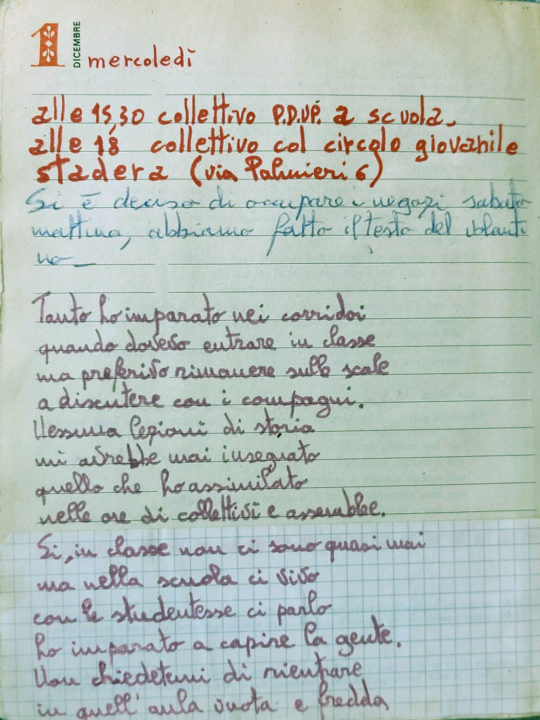 1 DICEMBRE
mercoledì
alle 15,30 collettivo P.D.U.P. a scuola.
alle 18 collettivo col circolo giovanile
stadera (via Palmieri 6)
Si è deciso di occupare i negozi sabato
mattina, abbiamo fatto il testo del volanti
no_
Tanto ho imparato nei corridoi
quando dovevo entrare in classe
ma preferivo rimanere sulle scale
a discutere con i compagni.
Nessuna lezioni di storia
mi avrebbe mai insegnato
quello che ho assimilato
nelle ore di collettivi e assemblee.
Si, in classe non ci sono quasi mai
ma nella scuola ci vivo
con le studentesse ci parlo
ho imparato a capire la gente.
Non chiedetemi di rientrare
in quell'aula vuota e fredda